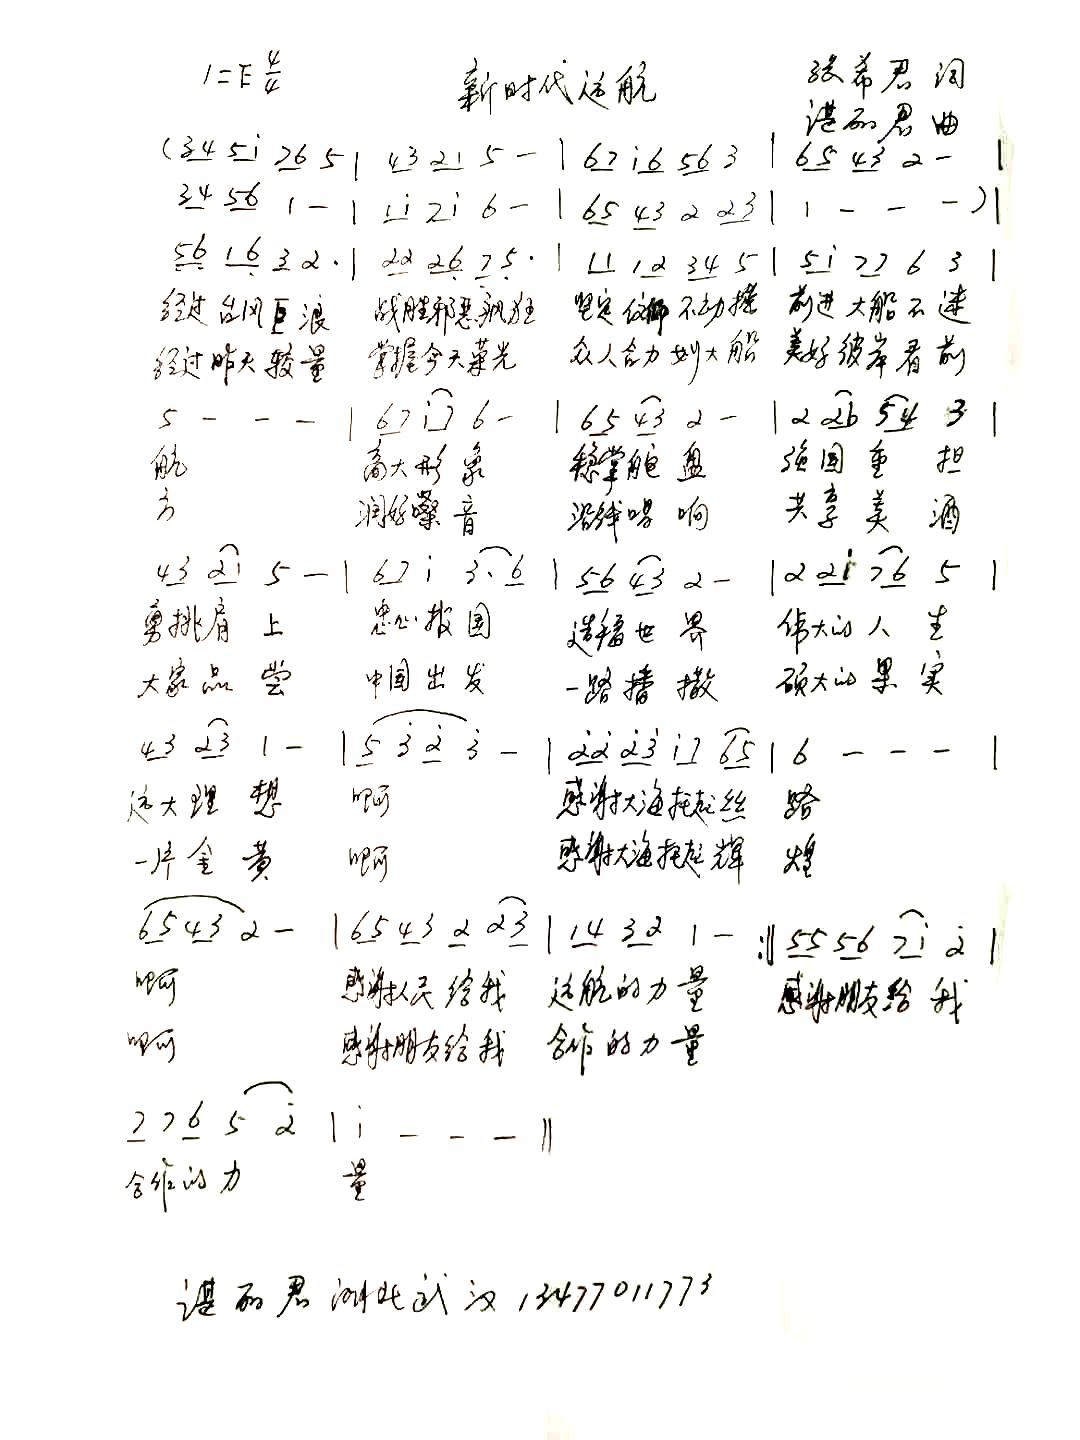 1=E 4/4 新时代远航 张希君 词
谌丽君 曲
(34 5i 76 5 | 43 21 5 - | 67 i6 56 3 | 65 43 2 - |
34 56 1 - | 1i 7i 6 - | 65 43 2 23 | 1 - - - ) |
56 16 3 2 · | 22 26 7 5 · | 11 12 34 5 | 5i 77 6 3 |
经过台风巨浪 战胜邪恶疯狂 坚定 不动摇 前进大船不迷
经过昨天较量 掌握今天荣光 众人合力划大船 美好彼岸看前
5 - - - | 67 i7 6 - | 65 43 2 - | 2 26 54 3 |
航 高大形象 稳掌舵盘 强国重担
方 润好嗓音 沿线唱响 共享美酒
43 21 5 - | 67 i 3· 6 | 56 43 2 - | 2 2i 76 5 |
勇挑肩上 忠心报国 造福世界 伟大的人生
大家品尝 中国出发 一路播撒 硕大的果实
43 23 1 - | 5 3 2 3 - | 22 23 i7 65 | 6 - - - |
远大理想 啊 感谢大海托起丝路
一片金黄 啊 感谢大海托起辉煌
65 43 2 - | 65 43 2 23 | 14 32 1 - :|| 55 56 7i 2 |
啊 感谢人民给我 远航的力量 感谢朋友给我
啊 感谢朋友给我 合作的力量
7 7 6 5 2 | i - - - ||
合作的力 量
谌丽君 湖北武汉 13477011773